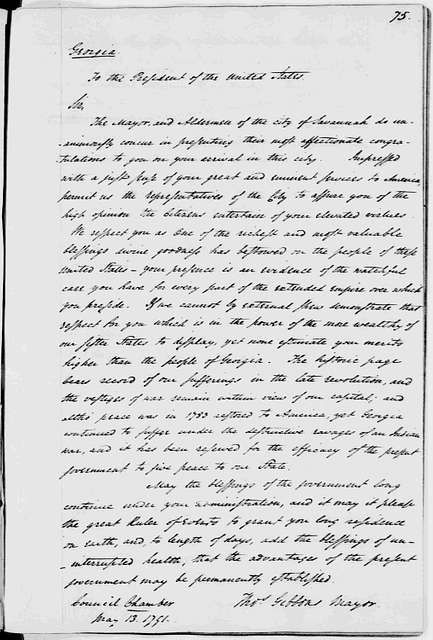 75.
Georgia
To the President of the United States.
Sir,
The Mayor, and Aldermen of the city of Savannah do un-
-animously concur in presenting their most affectionate congra-
-tulations to you on your arrival in this city. Impressed
with a just sense of your great and eminent services to America
permit us the representatives of the City to assure you of the
high opinion the Citizens entertain of your elevated virtues.
We respect you as one of the richest and most valuable
blessings divine goodness has bestowed on the people of these
United States – your presence is an evidence of the watchful
care you have for every part of the extended empire over which
you preside. If we cannot by external shew demonstrate that
respect for you which is in the power of the more wealthy of
our sister States to display, yet none estimate your merits
higher than the people of Georgia. The historic page
bears record of our sufferings in the late revolution, and
the vestiges of war remain within view of our capital; and
altho' peace was in 1783 restored to America, yet Georgia
continued to suffer under the destructive ravages of an Indian
war, and it has been reserved for the efficacy of the present
government to give peace to our State.
May the blessings of the government long
continue under your administration, and it may it please
the great Ruler of events to grant you long residence
on earth, and, to length of days, add the blessings of un-
-interrupted health, that the advantages of the present
government may be permanently established.
Council Chamber Thos. Gibbons Mayor.
May 13. 1791.